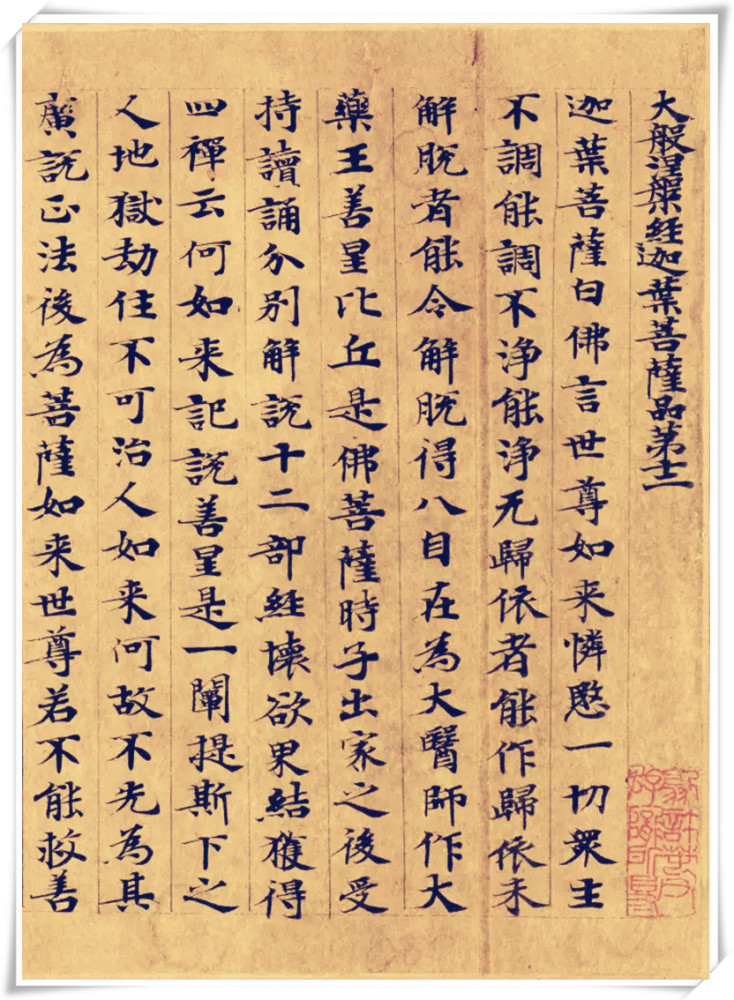 大般涅槃経迦葉菩薩品第十二
迦葉菩薩白佛言世尊如来憐愍一切衆生
不調能調不浄能浄无歸依者能作歸依未
解脱者能令解脱得八自在為大醫師作大
藥王善星比丘是佛菩薩時子出家之後受
持讀誦分别解説十二部経壊欲界結獲得
四禪云何如来記説善星是一闡提斯下之
人地獄劫住不可治人如来何故不先為其
廣説正法後為菩薩如来世尊若不能救善